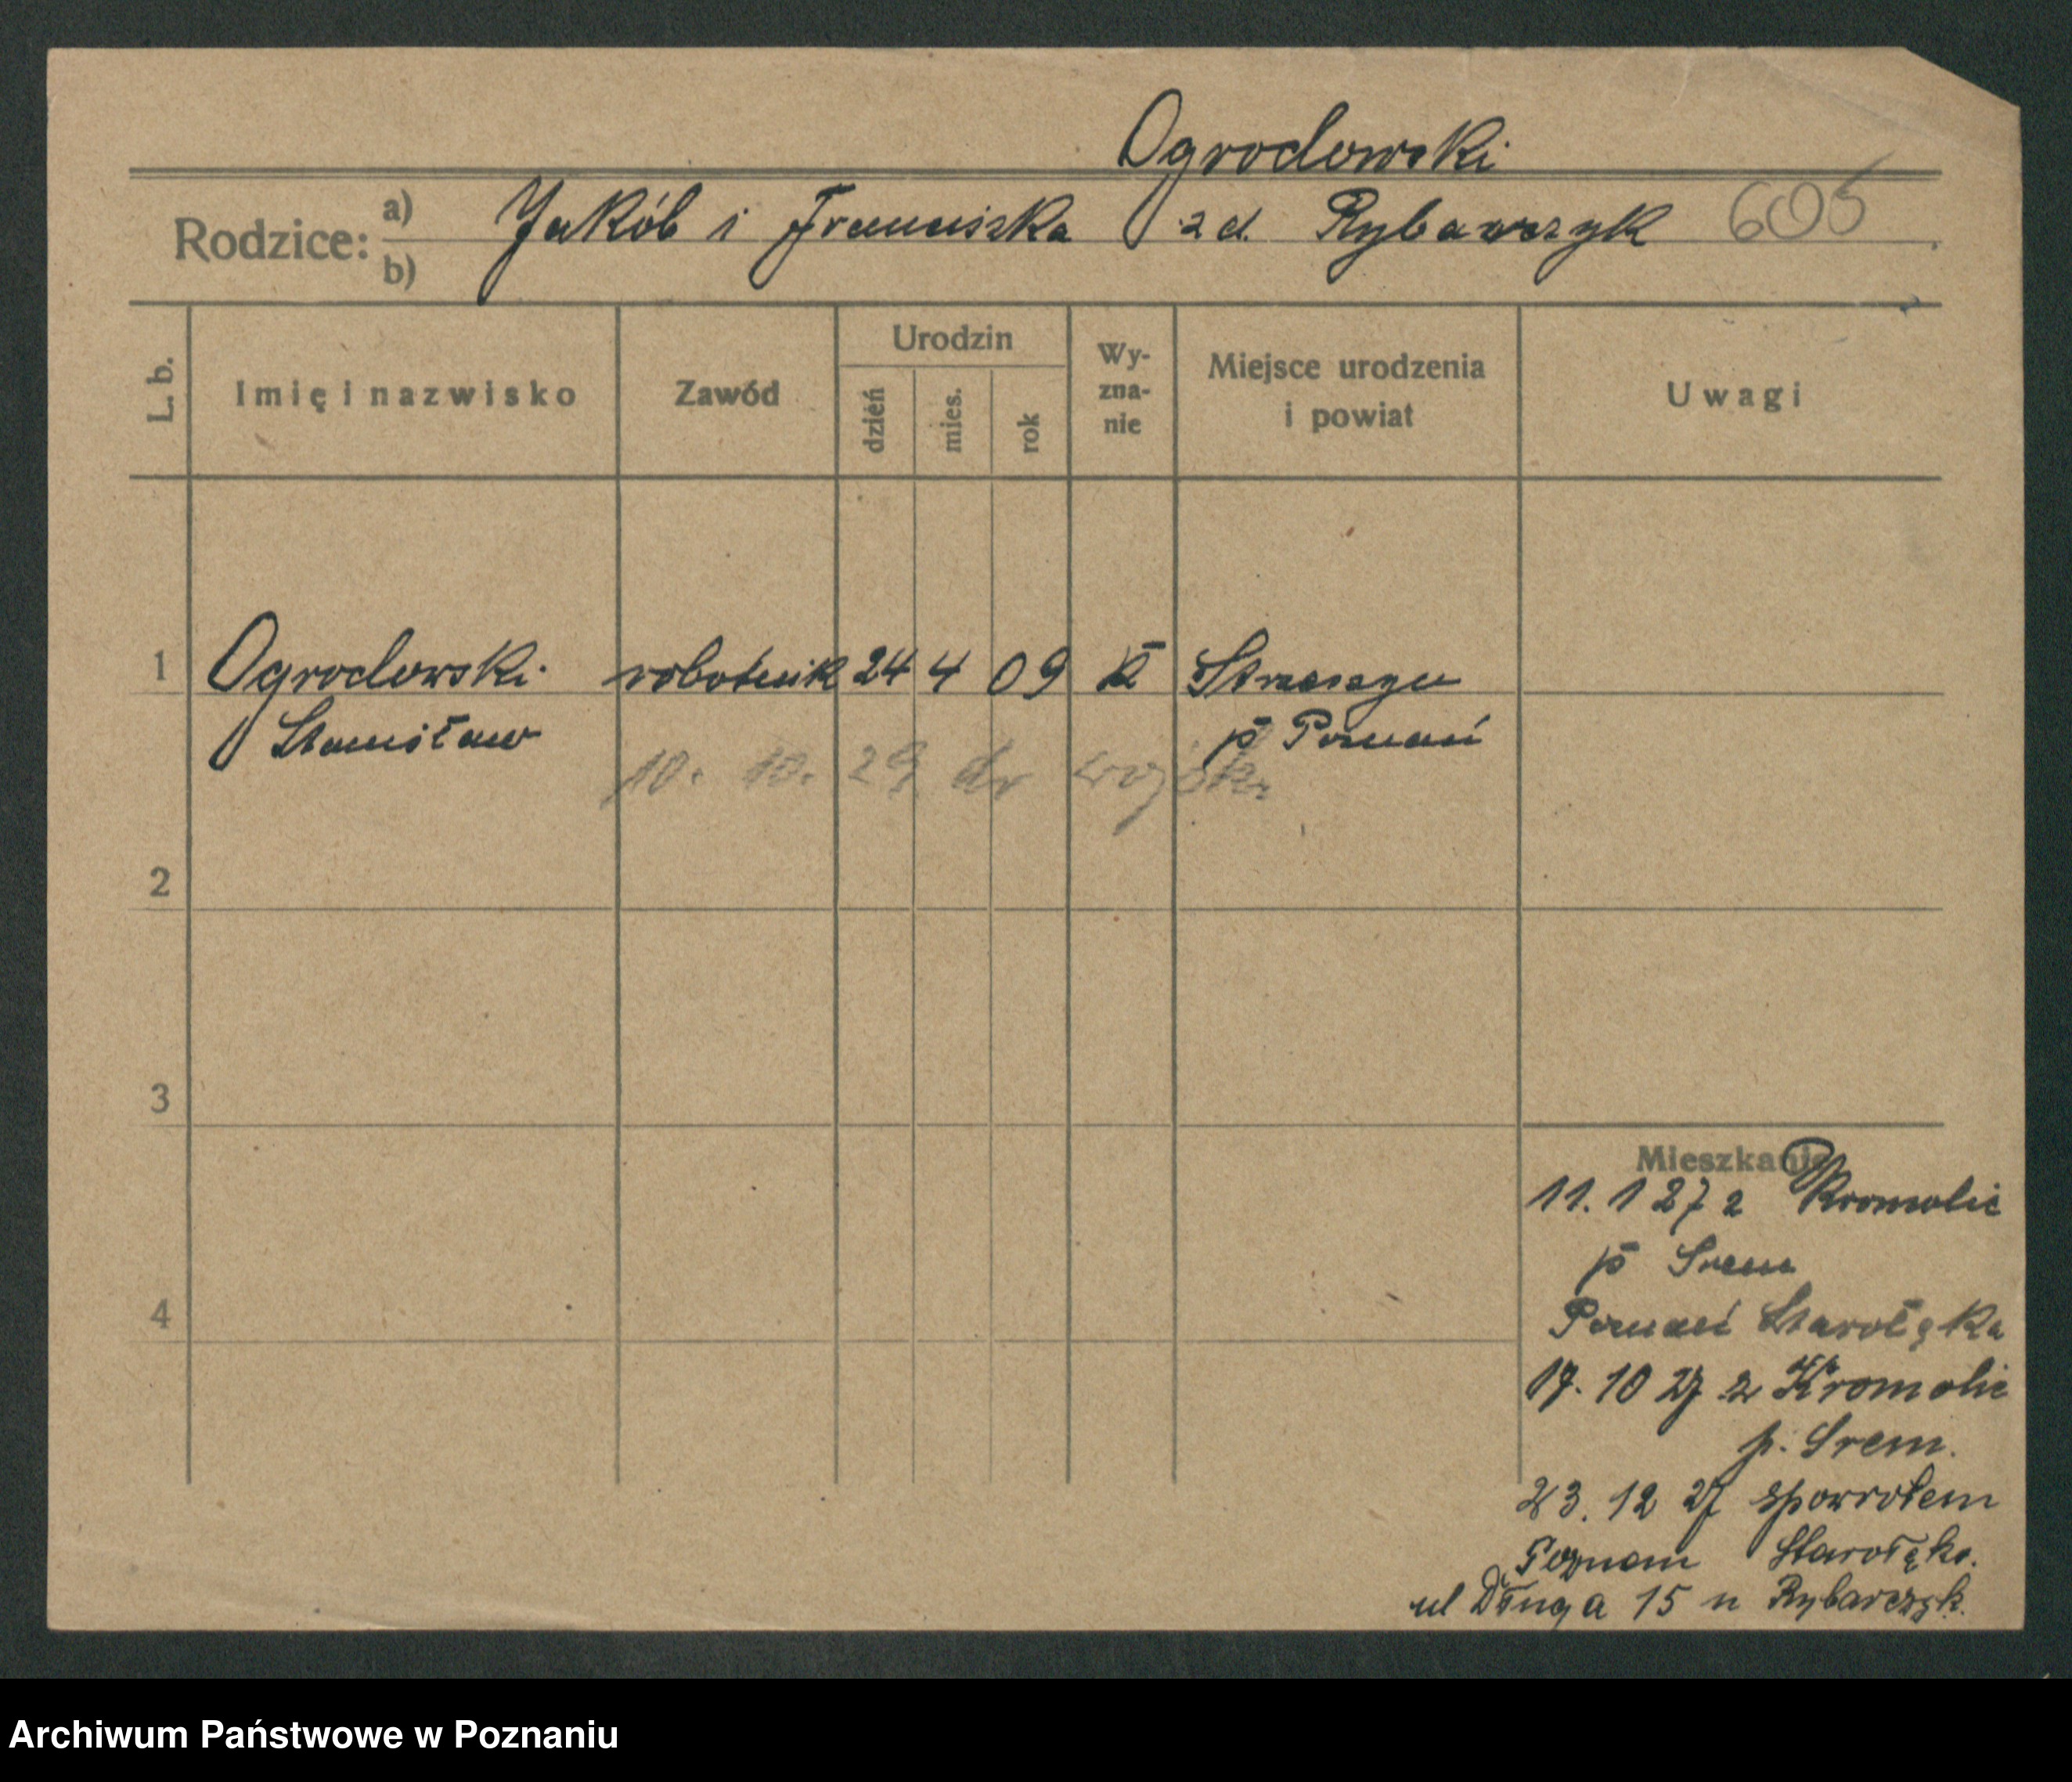 Ogrodowski
Rodzice: a) Jakób i Franciszka zd. Rybarczyk 605
b)
L. b. Imię i nazwisko Zawód Urodzin dzień mies. rok Wy-zna-nie Miejsce urodzenia i powiat Uwagi
1 Ogrodowski robotnik 24 4 09 k Straszyn
Stanisław p Poznań
10. 10. 29 do wojsk.
2
3
Mieszkanie
11. 1 27 z Kromolic
p Srem
4 Poznań Starołęka
17. 10 27 z Kromolic
p. Srem.
23. 12 27 spowrotem
Poznam Starołęka.
ul Długa 15 u Rybarczyk.
Archiwum Państwowe w Poznaniu